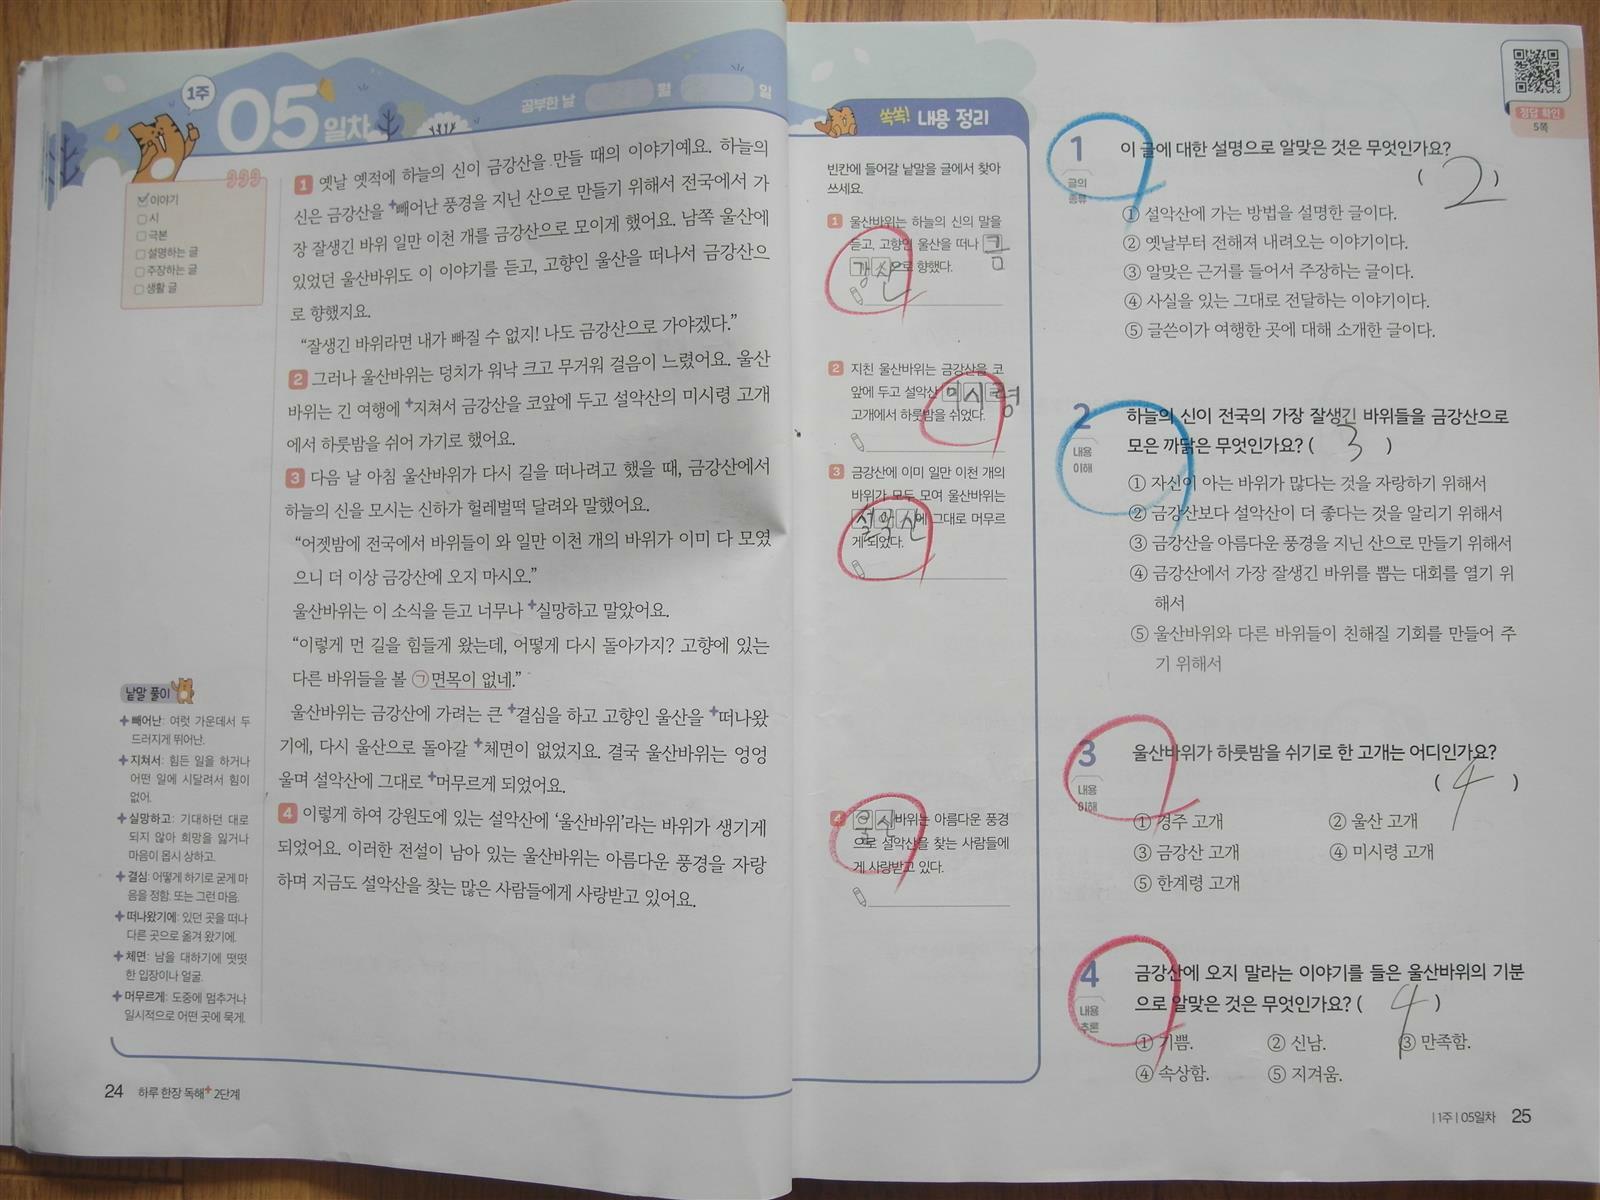 1주 05 일차
공부한 날 월 일
이야기
시
극본
설명하는 글
주장하는 글
생활 글
1 옛날 옛적에 하늘의 신이 금강산을 만들 때의 이야기예요. 하늘의
신은 금강산을 +빼어난 풍경을 지닌 산으로 만들기 위해서 전국에서 가
장 잘생긴 바위 일만 이천 개를 금강산으로 모이게 했어요. 남쪽 울산에
있었던 울산바위도 이 이야기를 듣고, 고향인 울산을 떠나서 금강산으
로 향했지요.
“잘생긴 바위라면 내가 빠질 수 없지! 나도 금강산으로 가야겠다.”
2 그러나 울산바위는 덩치가 워낙 크고 무거워 걸음이 느렸어요. 울산
바위는 긴 여행에 +지쳐서 금강산을 코앞에 두고 설악산의 미시령 고개
에서 하룻밤을 쉬어 가기로 했어요.
3 다음 날 아침 울산바위가 다시 길을 떠나려고 했을 때, 금강산에서
하늘의 신을 모시는 신하가 헐레벌떡 달려와 말했어요.
“어젯밤에 전국에서 바위들이 와 일만 이천 개의 바위가 이미 다 모였
으니 더 이상 금강산에 오지 마시오.”
울산바위는 이 소식을 듣고 너무나 +실망하고 말았어요.
“이렇게 먼 길을 힘들게 왔는데, 어떻게 다시 돌아가지? 고향에 있는
다른 바위들을 볼 ㉠면목이 없네.”
울산바위는 금강산에 가려는 큰 +결심을 하고 고향인 울산을 +떠나왔
기에, 다시 울산으로 돌아갈 +체면이 없었지요. 결국 울산바위는 엉엉
울며 설악산에 그대로 +머무르게 되었어요.
4 이렇게 하여 강원도에 있는 설악산에 ‘울산바위’라는 바위가 생기게
되었어요. 이러한 전설이 남아 있는 울산바위는 아름다운 풍경을 자랑
하며 지금도 설악산을 찾는 많은 사람들에게 사랑받고 있어요.
낱말 풀이
+빼어난: 여럿 가운데서 두
드러지게 뛰어난.
+지쳐서: 힘든 일을 하거나
어떤 일에 시달려서 힘이
없어.
+실망하고: 기대하던 대로
되지 않아 희망을 잃거나
마음이 몹시 상하고.
+결심: 어떻게 하기로 굳게 마
음을 정함. 또는 그런 마음.
+떠나왔기에: 있던 곳을 떠나
다른 곳으로 옮겨 왔기에.
+체면: 남을 대하기에 떳떳
한 입장이나 얼굴.
+머무르게: 도중에 멈추거나
일시적으로 어떤 곳에 묵게.
24 하루 한장 독해+ 2단계
쏙쏙! 내용 정리
빈칸에 들어갈 낱말을 글에서 찾아
쓰세요.
1 울산바위는 하늘의 신의 말을
듣고, 고향인 울산을 떠나 금
강산으로 향했다.
2 지친 울산바위는 금강산을 코
앞에 두고 설악산 미시령
고개에서 하룻밤을 쉬었다.
3 금강산에 이미 일만 이천 개의
바위가 모두 모여 울산바위는
설악산에 그대로 머무르
게 되었다.
4 울산바위는 아름다운 풍경
으로 설악산을 찾는 사람들에
게 사랑받고 있다.
정답 확인
5쪽
1 이 글에 대한 설명으로 알맞은 것은 무엇인가요?
글의
종류
( 2 )
① 설악산에 가는 방법을 설명한 글이다.
② 옛날부터 전해져 내려오는 이야기이다.
③ 알맞은 근거를 들어서 주장하는 글이다.
④ 사실을 있는 그대로 전달하는 이야기이다.
⑤ 글쓴이가 여행한 곳에 대해 소개한 글이다.
2 하늘의 신이 전국의 가장 잘생긴 바위들을 금강산으로
내용
이해
모은 까닭은 무엇인가요? ( 3 )
① 자신이 아는 바위가 많다는 것을 자랑하기 위해서
② 금강산보다 설악산이 더 좋다는 것을 알리기 위해서
③ 금강산을 아름다운 풍경을 지닌 산으로 만들기 위해서
④ 금강산에서 가장 잘생긴 바위를 뽑는 대회를 열기 위
해서
⑤ 울산바위와 다른 바위들이 친해질 기회를 만들어 주
기 위해서
3 울산바위가 하룻밤을 쉬기로 한 고개는 어디인가요?
내용
이해
( 4 )
① 경주 고개 ② 울산 고개
③ 금강산 고개 ④ 미시령 고개
⑤ 한계령 고개
4 금강산에 오지 말라는 이야기를 들은 울산바위의 기분
내용
추론
으로 알맞은 것은 무엇인가요? ( 4 )
① 기쁨. ② 신남. ③ 만족함.
④ 속상함. ⑤ 지겨움.
| 1주 | 05일차 25